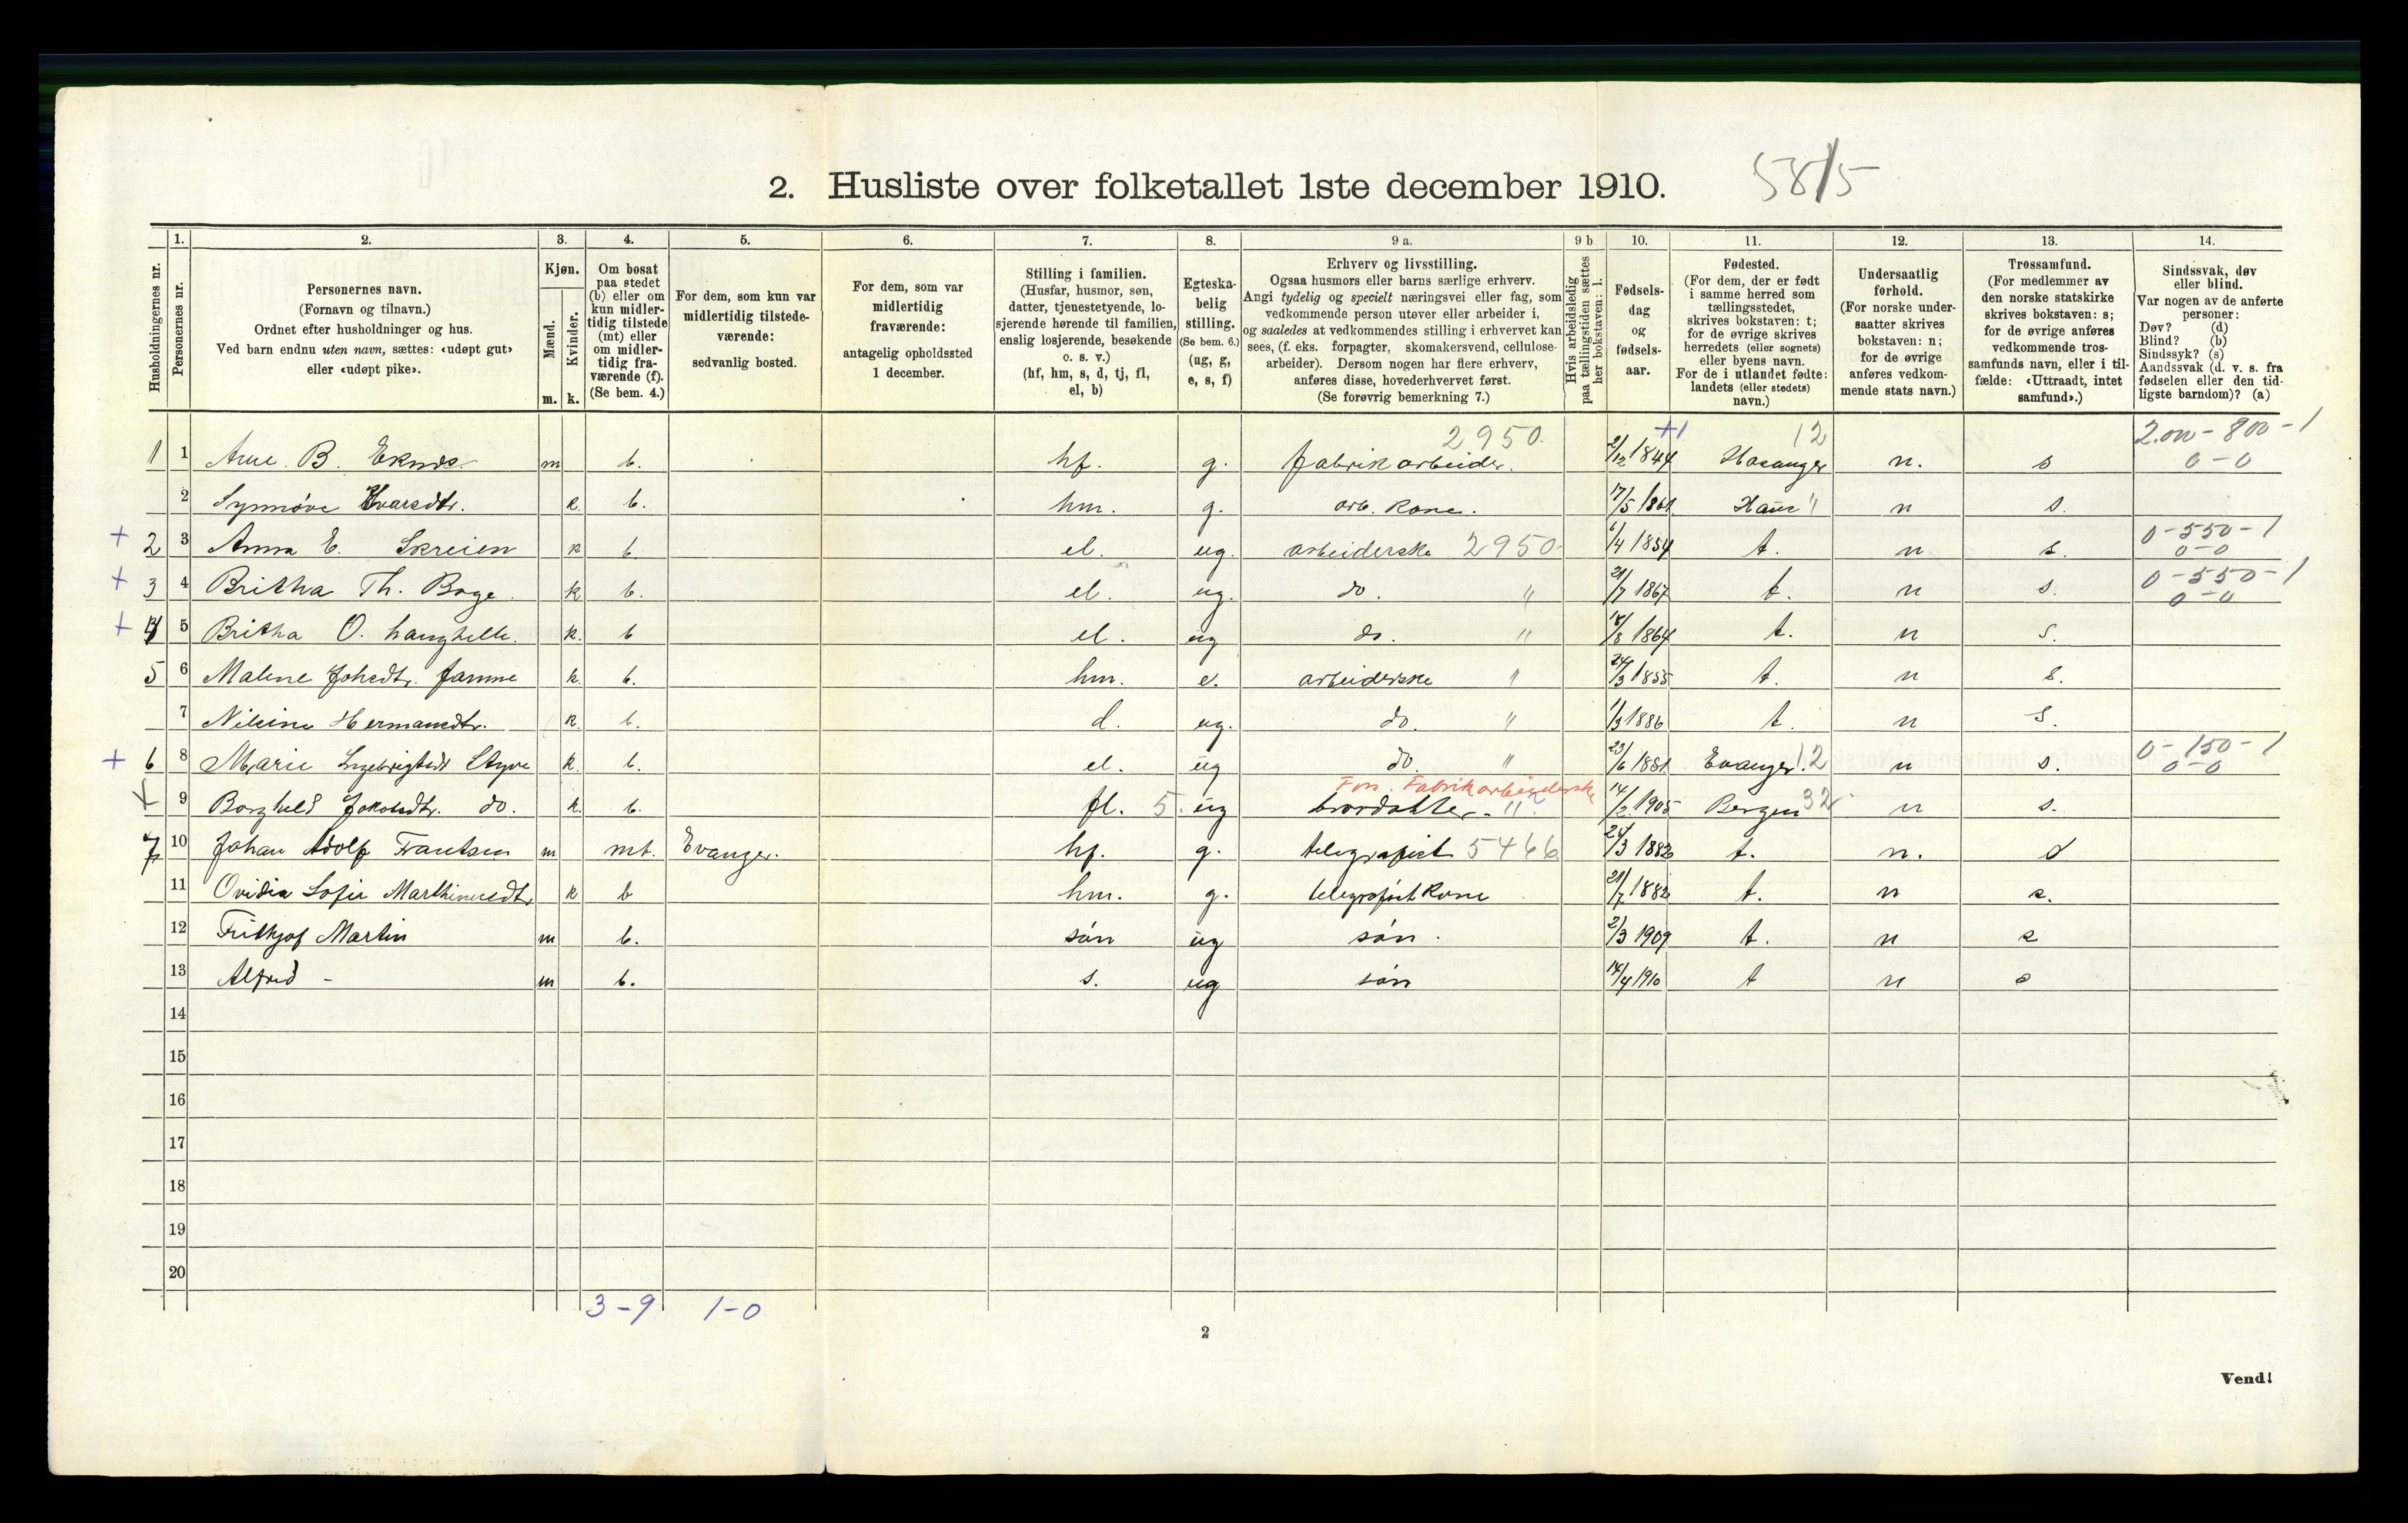 2. Husliste over folketallet 1ste december 1910. 58/5
Husholdningernes nr.
1. Personernes nr.
2. Personernes navn. (Fornavn og tilnavn.) Ordnet efter husholdninger og hus. Ved barn endnu uten navn, sættes: «udøpt gut» eller «udøpt pike».
3. Kjøn. Mænd. m. Kvinder. k.
4. Om bosat paa stedet (b) eller om kun midler-tidig tilstede (mt) eller om midler-tidig fra-værende (f). (Se bem. 4.)
5. For dem, som kun var midlertidig tilstede-værende: sedvanlig bosted.
6. For dem, som var midlertidig fraværende: antagelig opholdssted 1 december.
7. Stilling i familien. (Husfar, husmor, søn, datter, tjenestetyende, lo-sjerende hørende til familien, enslig losjerende, besøkende o. s. v.) (hf, hm, s, d, tj, fl, el, b)
8. Egteska-belig stilling. (Se bem. 6.) (ug, g, e, s, f)
9 a. Erhverv og livsstilling. Ogsaa husmors eller barns særlige erhverv. Angi tydelig og specielt næringsvei eller fag, som vedkommende person utøver eller arbeider i, og saaledes at vedkommendes stilling i erhvervet kan sees, (f. eks. forpagter, skomakersvend, cellulose-arbeider). Dersom nogen har flere erhverv, anføres disse, hovederhvervet først. (Se forøvrig bemerkning 7.)
9 b Hvis arbeidsledig paa tællingstiden sættes her bokstaven: l.
10. Fødsels-dag og fødsels-aar.
11. Fødested. (For dem, der er født i samme herred som tællingsstedet, skrives bokstaven: t; for de øvrige skrives herredets (eller sognets) eller byens navn. For de i utlandet fødte: landets (eller stedets) navn.)
12. Undersaatlig forhold. (For norske under-saatter skrives bokstaven: n; for de øvrige anføres vedkom-mende stats navn.)
13. Trossamfund. (For medlemmer av den norske statskirke skrives bokstaven: s; for de øvrige anføres vedkommende tros-samfunds navn, eller i til-fælde: «Uttraadt, intet samfund».)
14. Sindssvak, døv eller blind. Var nogen av de anførte personer: Døv? (d) Blind? (b) Sindssyk? (s) Aandssvak (d. v. s. fra fødselen eller den tid-ligste barndom)? (a)
2950. +1 12 2.00 - 800 - 1
1 1 Arne B. Eknes m b. hf. g. fabrikarbeider. 2/12 1844 Hosanger n. s 0-0
2 Synnøve Ivarsdtr. k. b. hm. g. arb. kone. 17/5 1861 Haus " n s.
+ 2 3 Anna E. Skreien k b. el. ug. arbeiderske 2950 6/4 1854 t. n s. 0-550-1 0-0
+ 3 4 Britha Th. Boge. k b. el. ug. do. " 21/7 1867 t. n s. 0-550-1 0-0
+ 4 5 Britha O. Langhelle. k. b el. ug do. " 18/8 1864 t. n s.
5 6 Malene Johsdtr. Jamne k. b. hm. e. arbeiderske " 24/3 1855 t. n s.
7 Nilsine Hermansdtr. k. b. d. ug. do. " 1/3 1886 t. n s.
+ 6 8 Marie Ingebrigtsdt Styve k. b. el. ug do. " 23/6 1881 Evanger. 12 n s. 0-150-1 0-0
Fors. Fabrikarbeiderske
9 Borghild Jakobsdtr. do. k. b. fl. 5 ug brordatter - " 14/2 1905 Bergen 32 n s.
7 10 Johan Adolf Frantsen m mt. Evanger. hf. g. telegrafist 5466 24/3 1882 t. n. s
11 Ovidia Sofie Marthinusdtr k b hm. g. telegrafistkone 21/7 1882 t. n s.
12 Frithjof Martin m b. søn ug søn. 2/3 1909 t. n s
13 Alfred - m b. s. ug søn 14/4 1910 t n s
14
15
16
17
18
19
20
3-9 1-0
2
Vend!